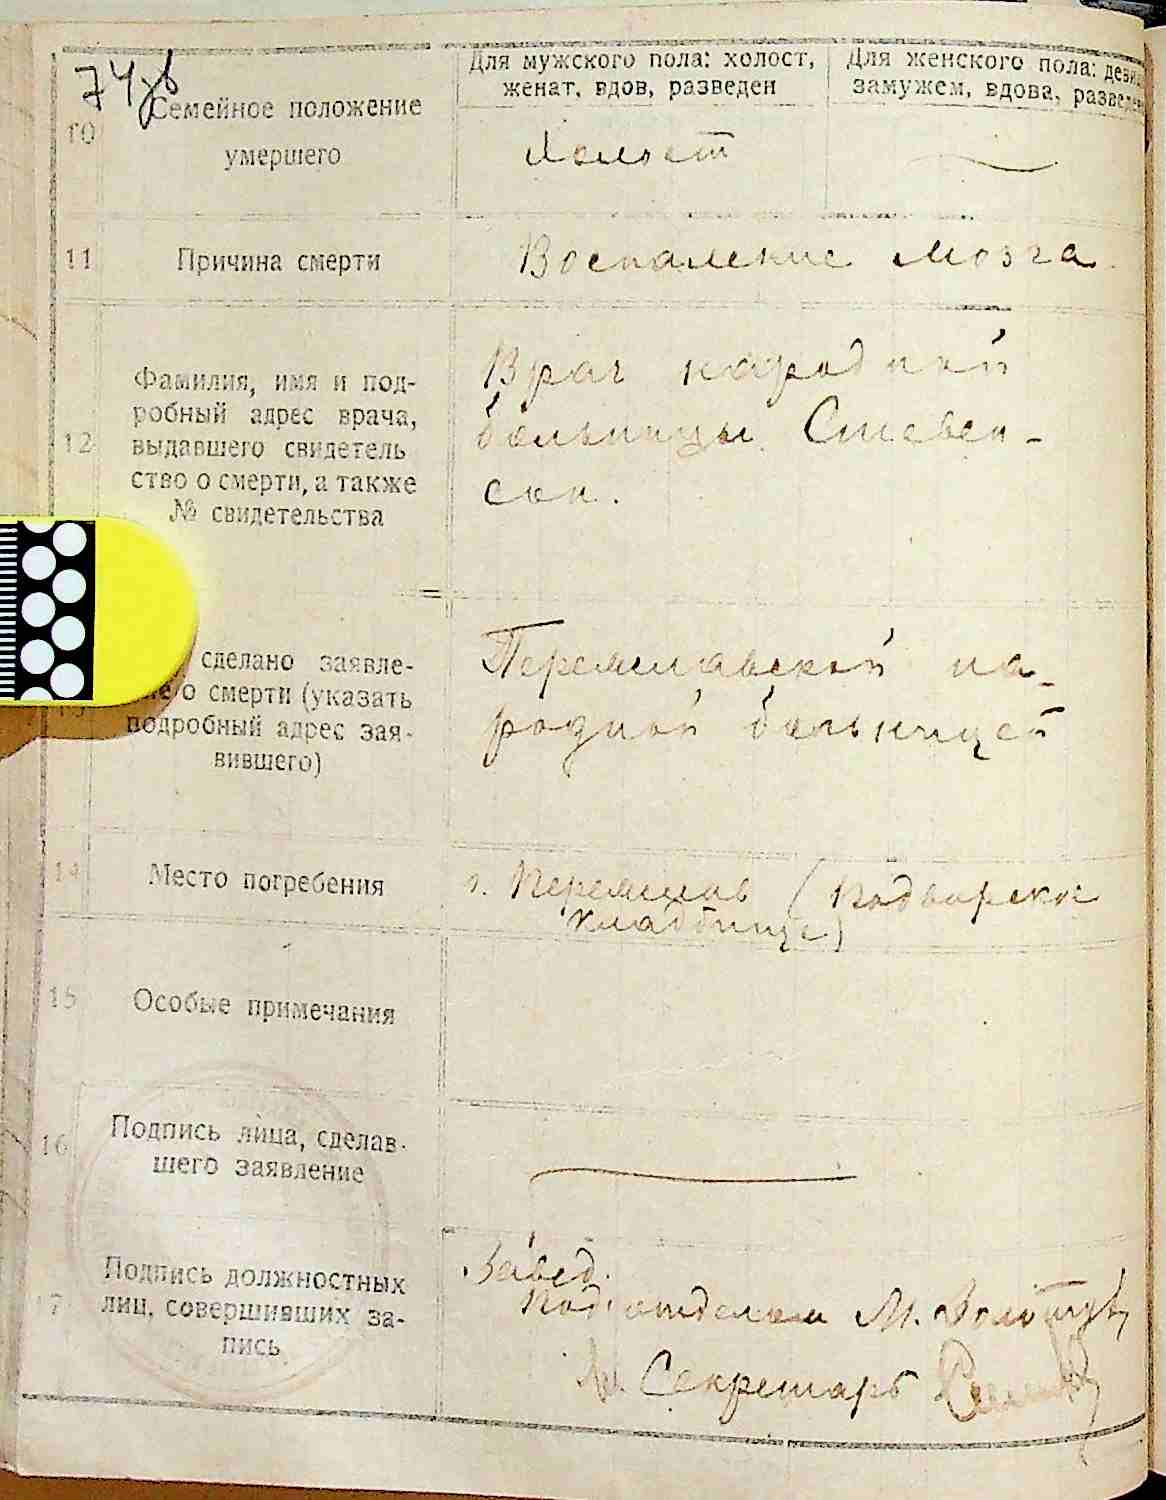 74об
Для мужского пола: холост,
женат, вдов, разведен
Для женского пола: девица
замужем, вдова, разведен
10
Семейное положение
умершего
Холост
11
Причина смерти
Воспаление мозга
12
Фамилия, имя и под-
робный адрес врача,
выдавшего свидетель
ство о смерти, а также
№ свидетельства
Врач народной
больницы Стевен-
сон.
сделано заявле-
о смерти (указать
подробный адрес зая-
вившего)
Перемышльской на-
родной больницей
14
Место погребения
г. Перемышль (Подворское
кладбище)
15
Особые примечания
16
Подпись лица, сделав-
шего заявление
17
Подпись должностных
лиц, совершивших за-
пись
Завед.
Под'отделом М.
Секретарь